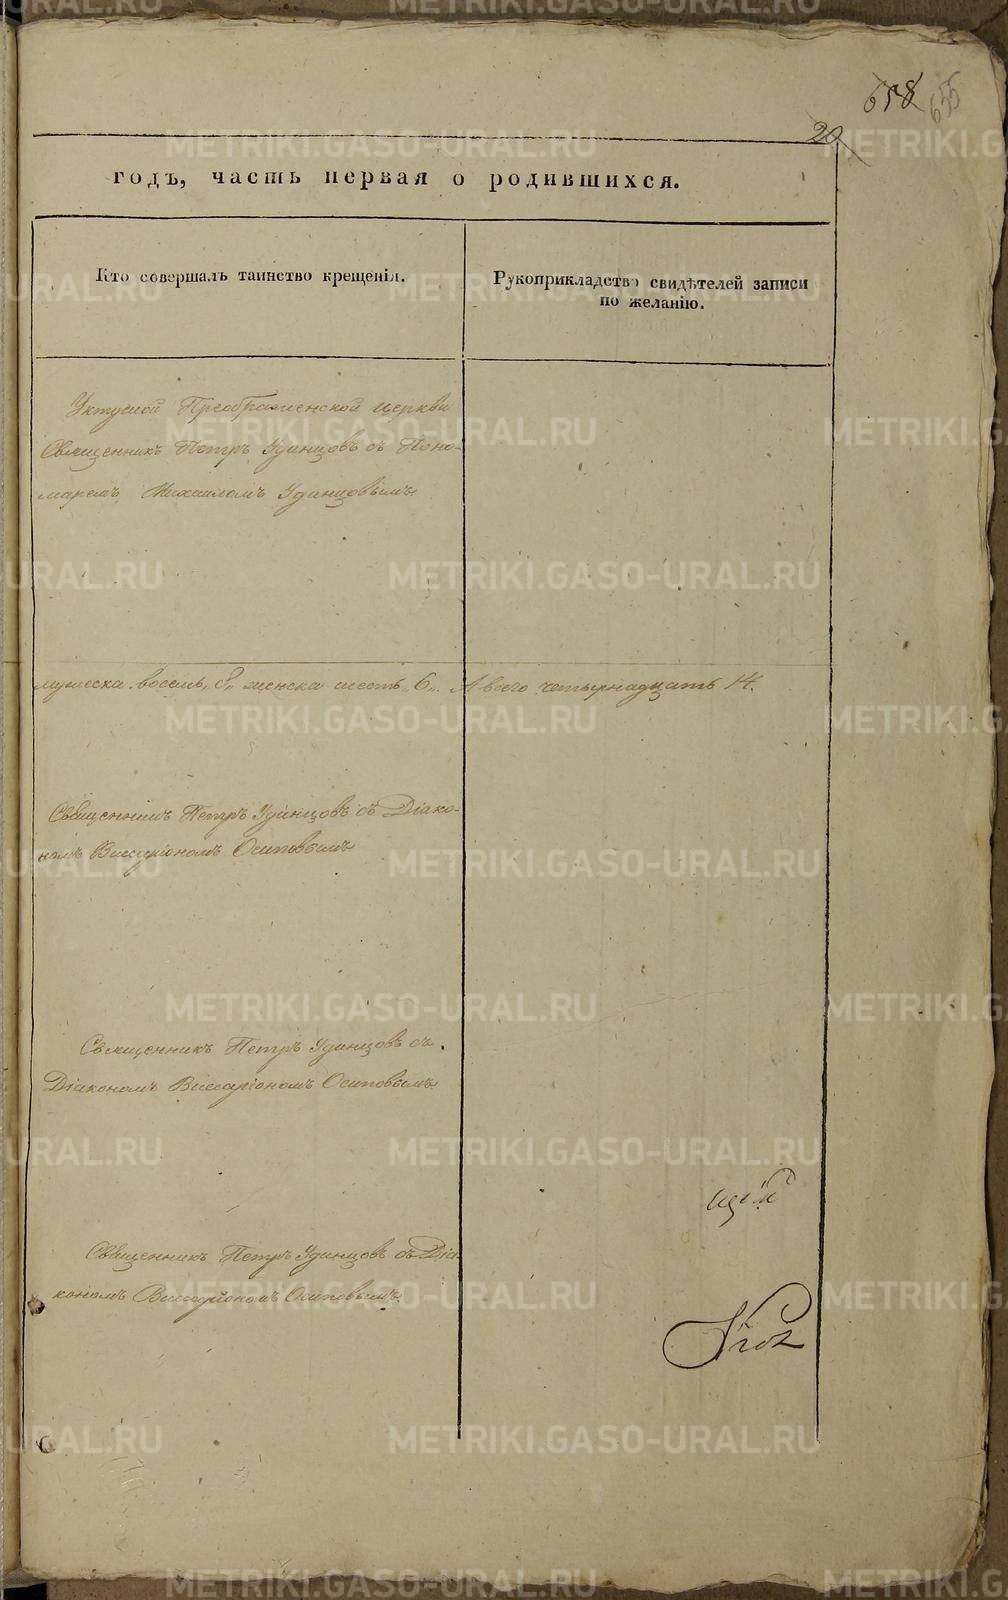 658 655
20
годъ, часть первая о родившихся.
Кто совершалъ таинство крещенія.
Рукоприкладство свидѣтелей записи
по желанію.
Уктуской Преображенской церкви
Священникъ Петръ Удинцовъ съ Поно-
маремъ Михаиломъ Удинцовымъ
мужеска восемь, 8, женска шесть, 6. А всего четырнадцать 14.
Священникъ Петръ Удинцовъ съ Діако-
номъ Виссаріономъ Осиповымъ
Священникъ Петръ Удинцовъ съ
Діакономъ Виссаріономъ Осиповымъ
Священникъ Петръ Удинцовъ съ Діа-
кономъ Виссаріономъ Осиповымъ
METRIKI.GASO-URAL.RU